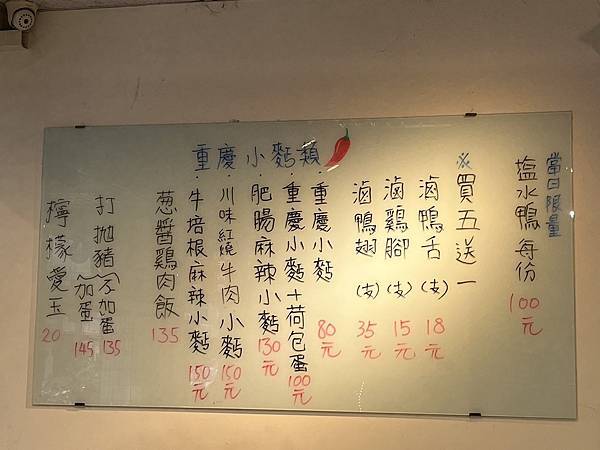 重慶小麵類
當日限量
塩水鴨每份 100元
※買五送一
滷鴨舌(支) 18元
滷鷄腳(支) 15元
滷鴨翅(支) 35元
·重慶小麵 80元
·重慶小麵+荷包蛋 100元
肥腸麻辣小麵 130元
川味紅燒牛肉小麵 150元
牛培根麻辣小麵 150元
葱醬鷄肉飯 135
打拋豬(不加蛋 135
(加蛋 145
檸檬愛玉 20